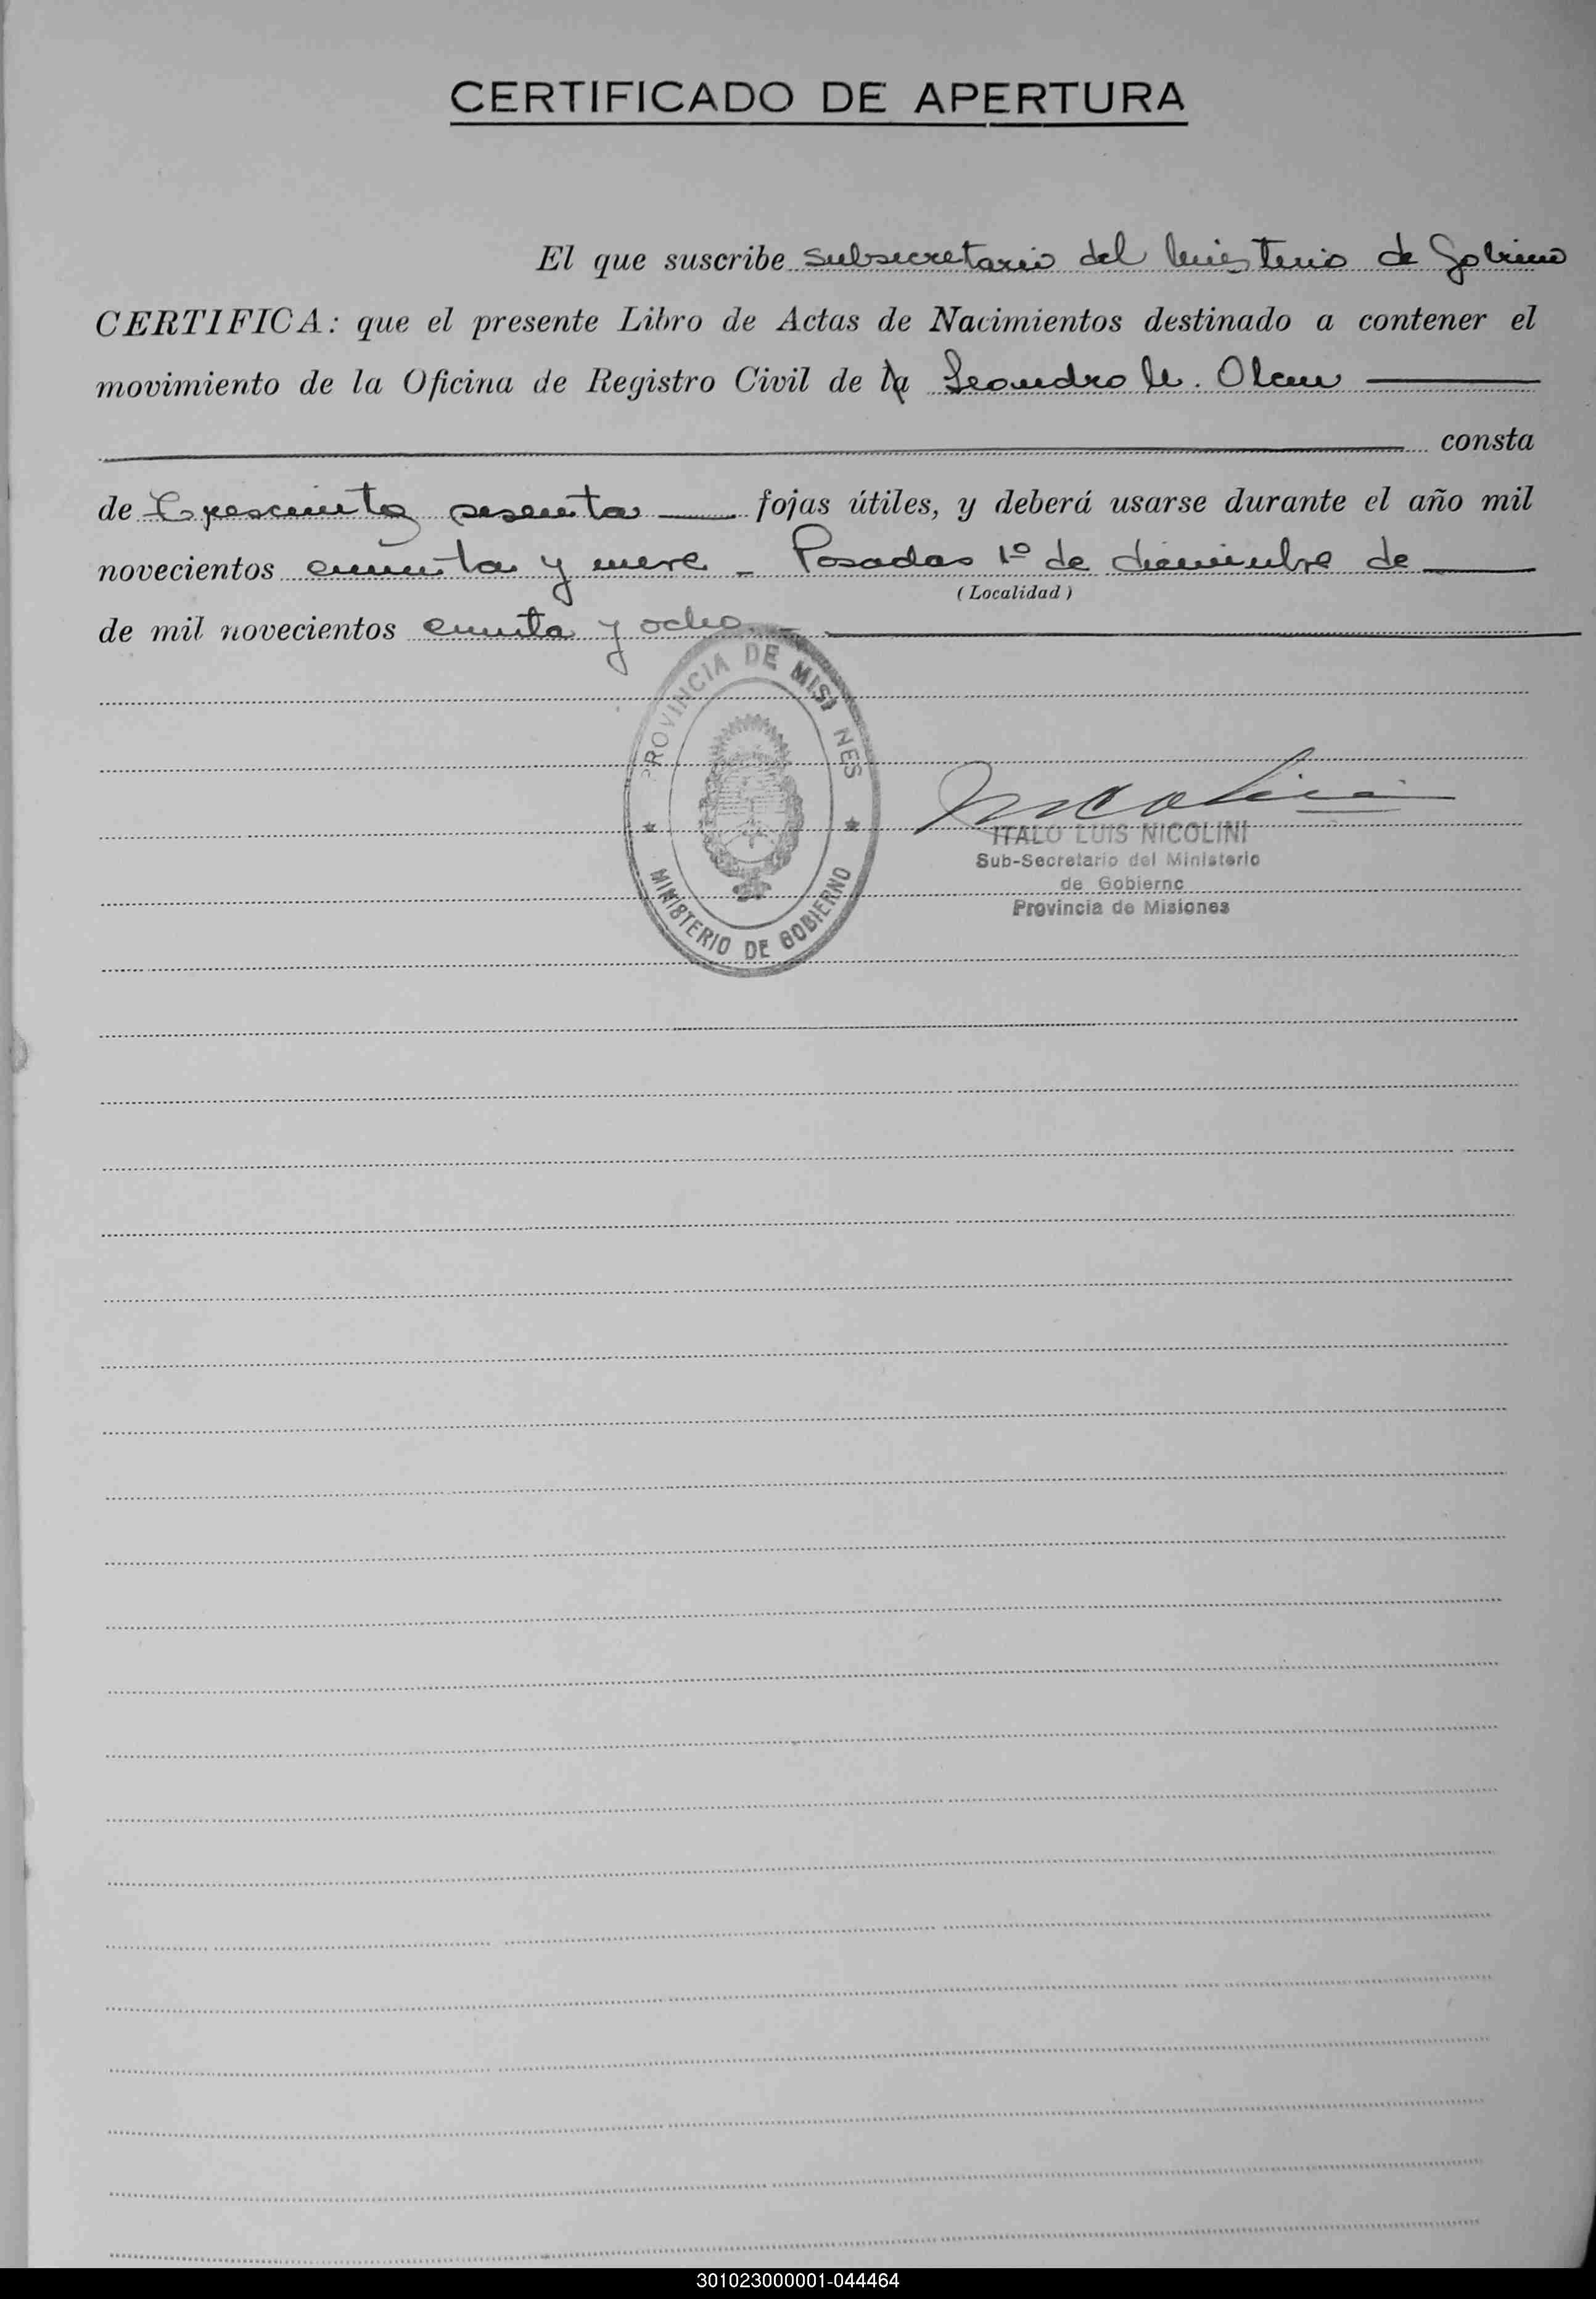 CERTIFICADO DE APERTURA
El que suscribe subsecretario del Ministerio de Gobierno
CERTIFICA: que el presente Libro de Actas de Nacimientos destinado a contener el
movimiento de la Oficina de Registro Civil de la Leandro N. Alem
consta
de Trescientas sesenta fojas útiles, y deberá usarse durante el año mil
novecientos cincuenta y nueve - Posadas 1º de diciembre de
(Localidad)
de mil novecientos cincuenta y ocho. -
PROVINCIA DE MISI NES
MINISTERIO DE GOBIERNO
Nicolini
ITALO LUIS NICOLINI
Sub-Secretario del Ministerio
de Gobierno
Provincia de Misiones
301023000001-044464